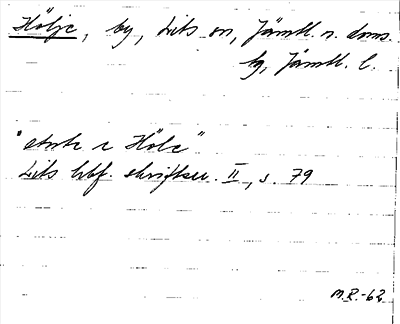 Hölje, by, Lits sn, Jämtl. n. doms.
lg, Jämtl. l.
"
i Höle"
Lits hbf. skriftser. II, s. 79
M.R.-62